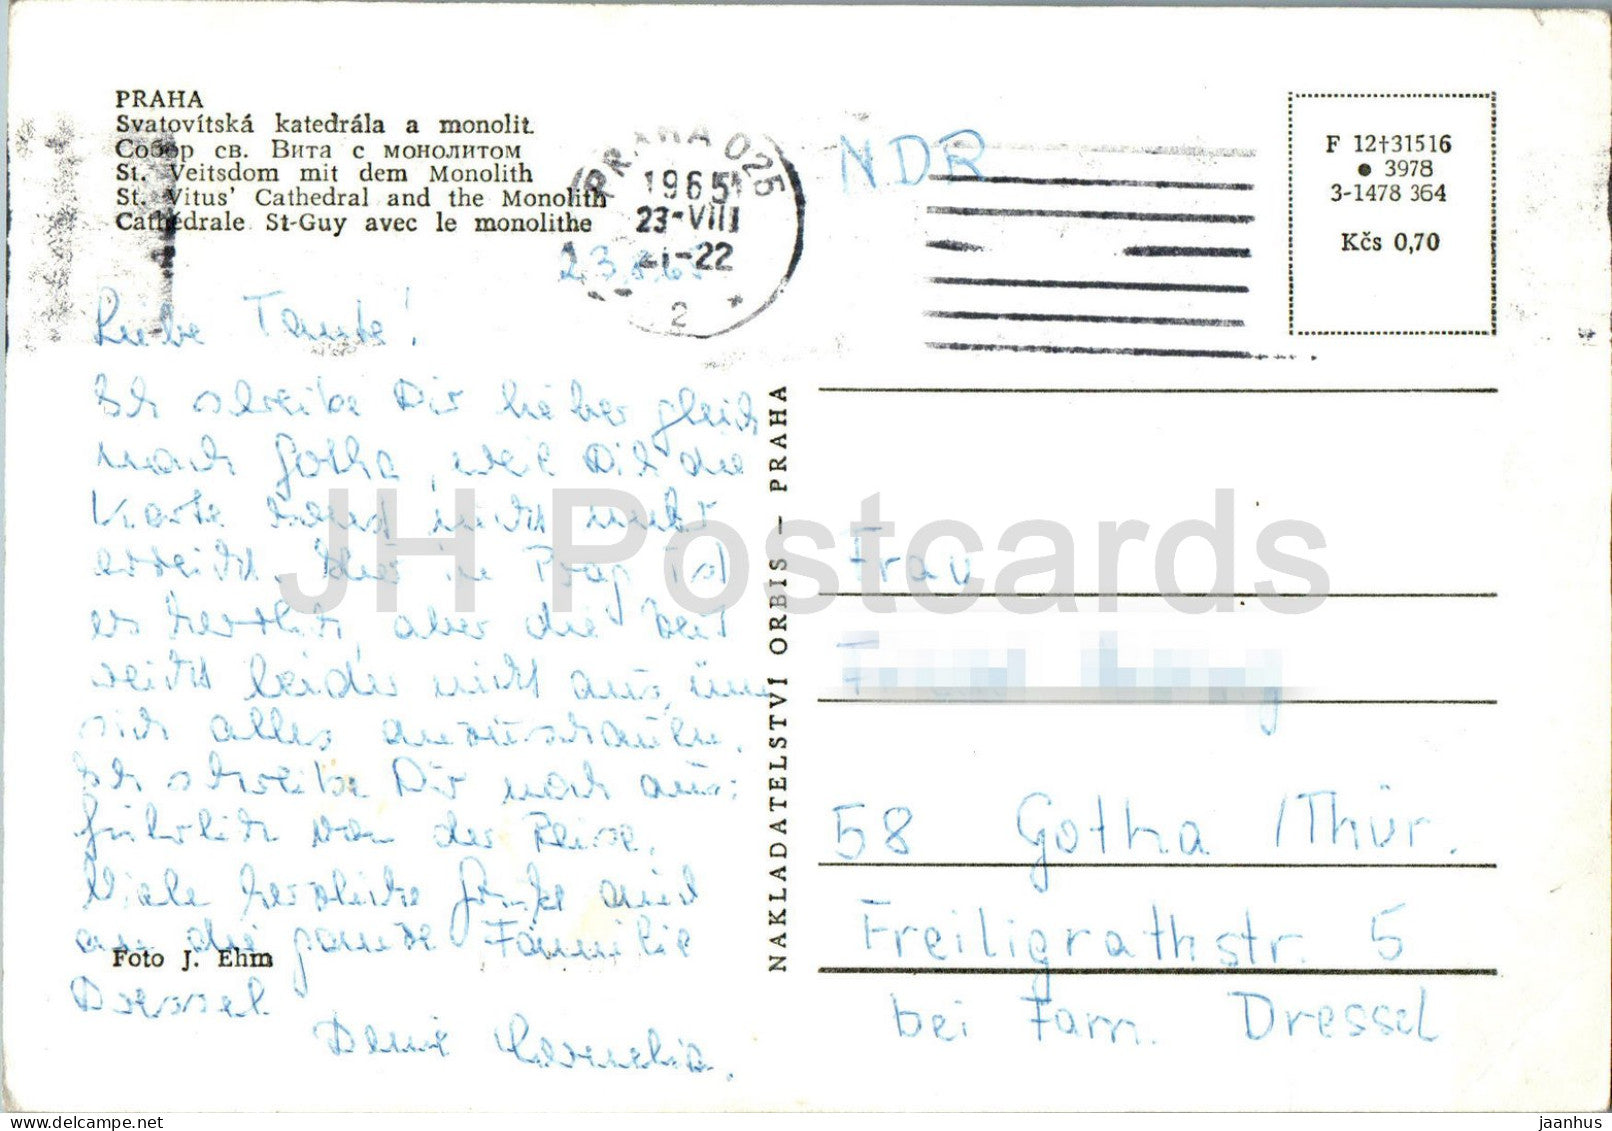 PRAHA
Svatovítská katedrála a monolit
Собор св. Вита с монолитом
St. Veitsdom mit dem Monolith
St. Vitus' Cathedral and the Monolith
Cathédrale St-Guy avec le monolithe
PRAHA 025
1965
23-VIII
21-22
2
NDR
F 12†31516
● 3978
3-1478 364
Kčs 0,70
23.8.65
Liebe Tante!
Ich schreibe Dir lieber gleich
nach Gotha, weil Dich die
Karte sonst nicht mehr
erreicht. Hier in Prag ist
es herrlich, aber die Zeit
reicht leider nicht aus, um
sich alles anzuschauen.
Ich schreibe Dir noch aus-
führlich von der Reise.
Viele herzliche Grüße auch
an die ganze Familie
Dressel
Deine Cornelia.
Foto J. Ehm
NAKLADATELSTVÍ ORBIS — PRAHA
Frau
58 Gotha /Thür.
Freiligrathstr. 5
bei Fam. Dressel
JH Postcards
jaanhus
HipPostcard.com